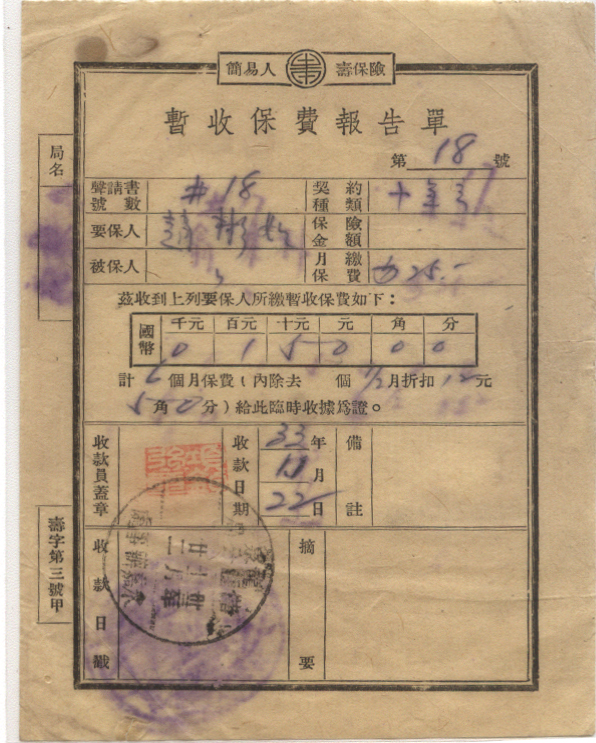 簡易人 壽保險
暫收保費報告單
第 18 號
局名
聲請書號數 #18 契約種類 十年
要保人 趙 保險金額
被保人 〃 月繳保費 25.-
茲收到上列要保人所繳暫收保費如下：
國幣 千元 百元 十元 元 角 分
0 1 5 0 0 0
計 6 個月保費（內除去 個 1/2 月折扣 12 元
5 角 0 分）給此臨時收據爲證。
收款員蓋章 收款日期 33 年 11 月 22 日 備註
收款日戳 摘要
壽字第三號甲